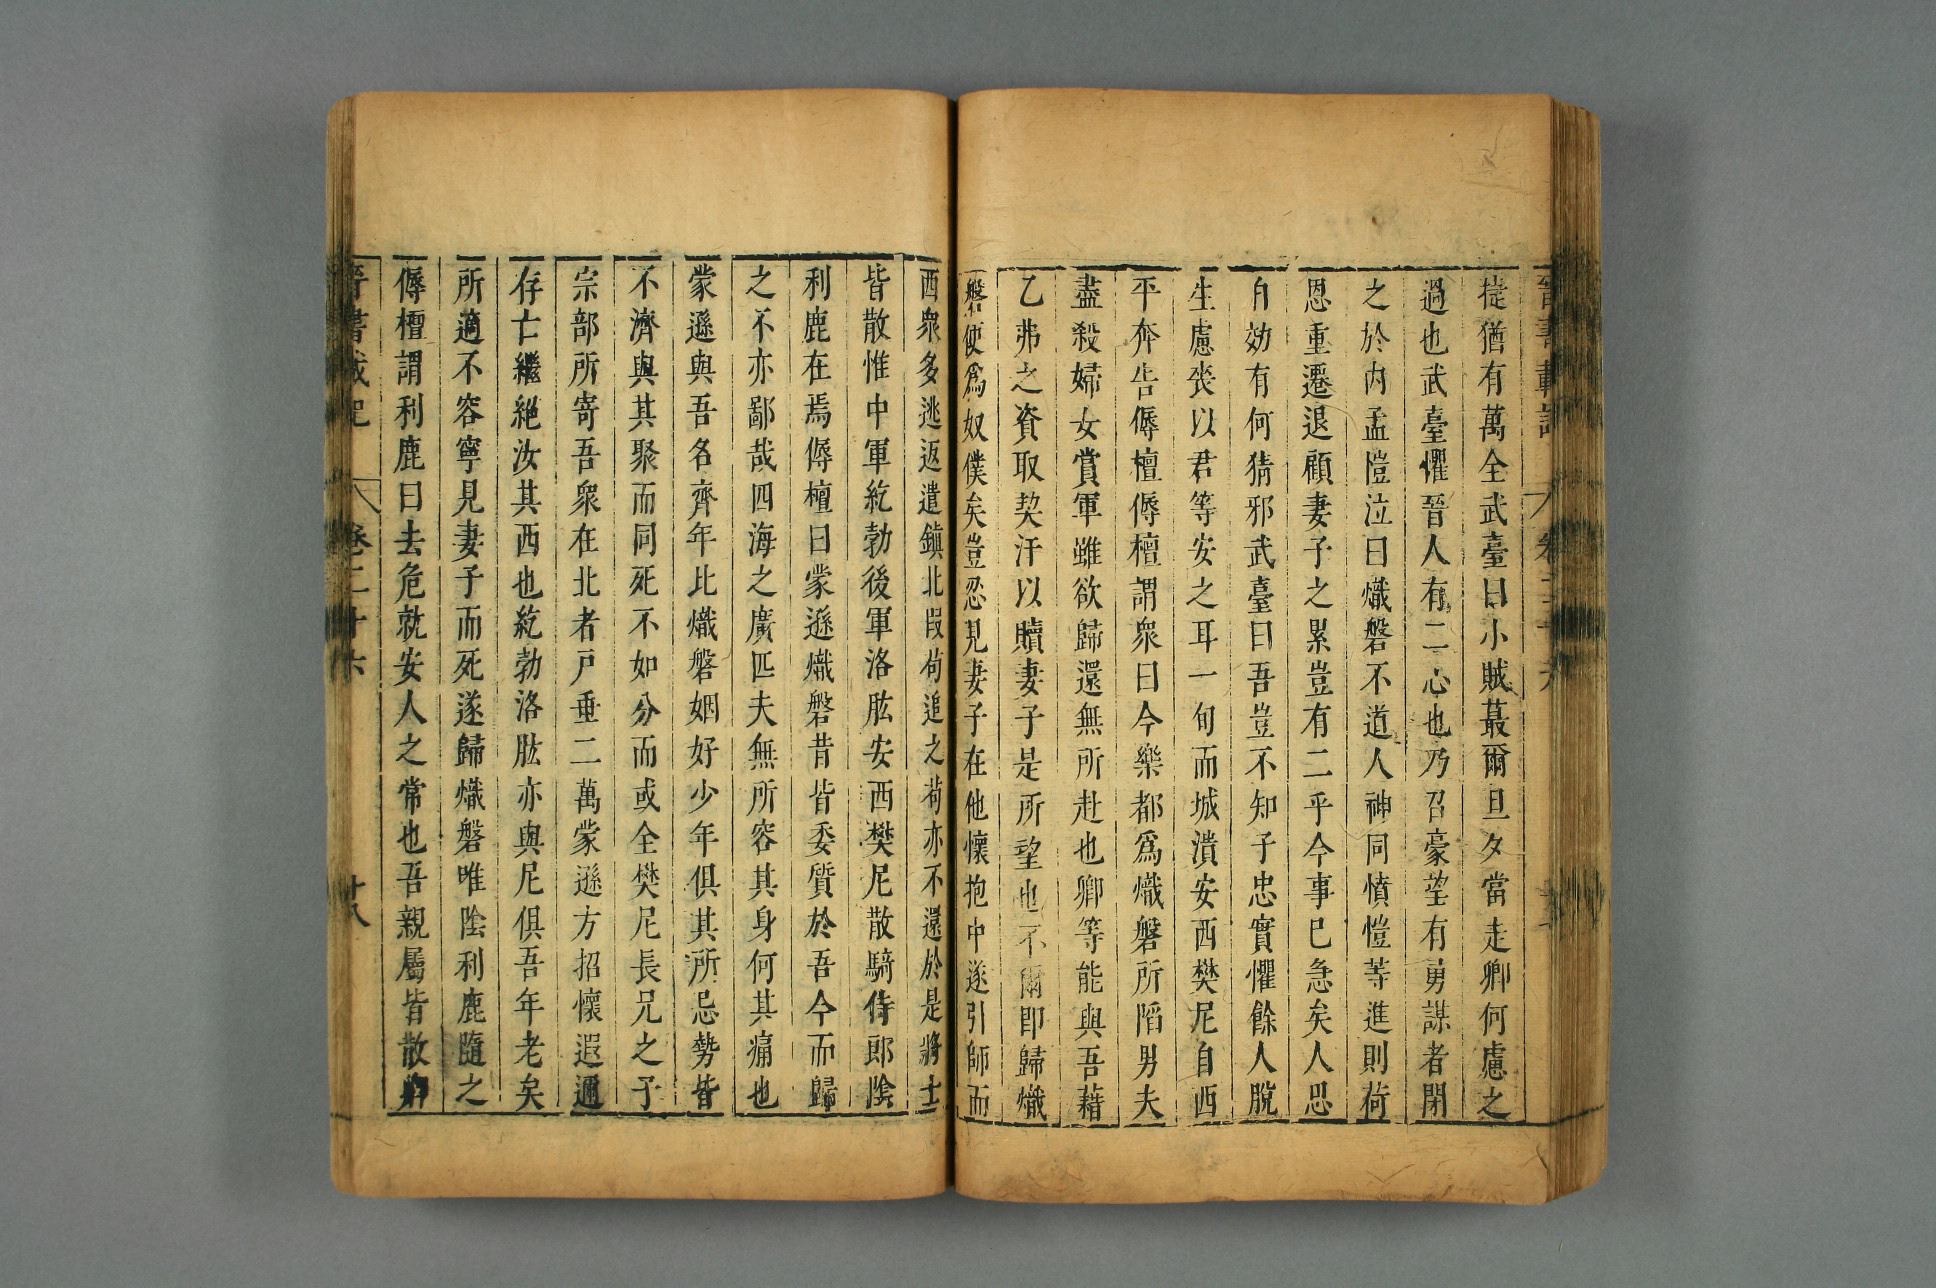 晉書載記 卷二十六
徙猶有萬全武臺曰小賊蕞爾旦夕當走卿何慮之
過也武臺懼晉人有二心也乃召豪望有勇謀者閉
之於內孟愷泣曰熾磐不道人神同憤愷等進則荷
恩重遷退顧妻子之累豈有二乎今事已急矣人思
自効有何猜邪武臺曰吾豈不知子忠實懼餘人脫
生慮丧以君等安之耳一旬而城潰安西樊尼自西
平奔告傉檀傉檀謂衆曰今樂都爲熾磐所陷男夫
盡殺婦女賞軍雖欲歸還無所赴也卿等能與吾藉
乙弗之資取契汗以贖妻子是所望也不爾即歸熾
磐便爲奴僕矣豈忍見妻子在他懷抱中遂引師而
西衆多逃返遣鎮北段苟追之苟亦不還於是將士
皆散惟中軍紇勃後軍洛肱安西樊尼散騎侍郎陰
利鹿在焉傉檀曰蒙遜熾磐昔皆委質於吾今而歸
之不亦鄙哉四海之廣匹夫無所容其身何其痛也
蒙遜與吾名齊年比熾磐姻好少年俱其所忌勢皆
不濟與其聚而同死不如分而或全樊尼長兄之子
宗部所寄吾衆在北者戶垂二萬蒙遜方招懷遐邇
存亡繼絕汝其西也紇勃洛肱亦與尼俱吾年老矣
所適不容寧見妻子而死遂歸熾磐唯陰利鹿隨之
傉檀謂利鹿曰去危就安人之常也吾親屬皆散卿
晉書載記 卷二十六 十八